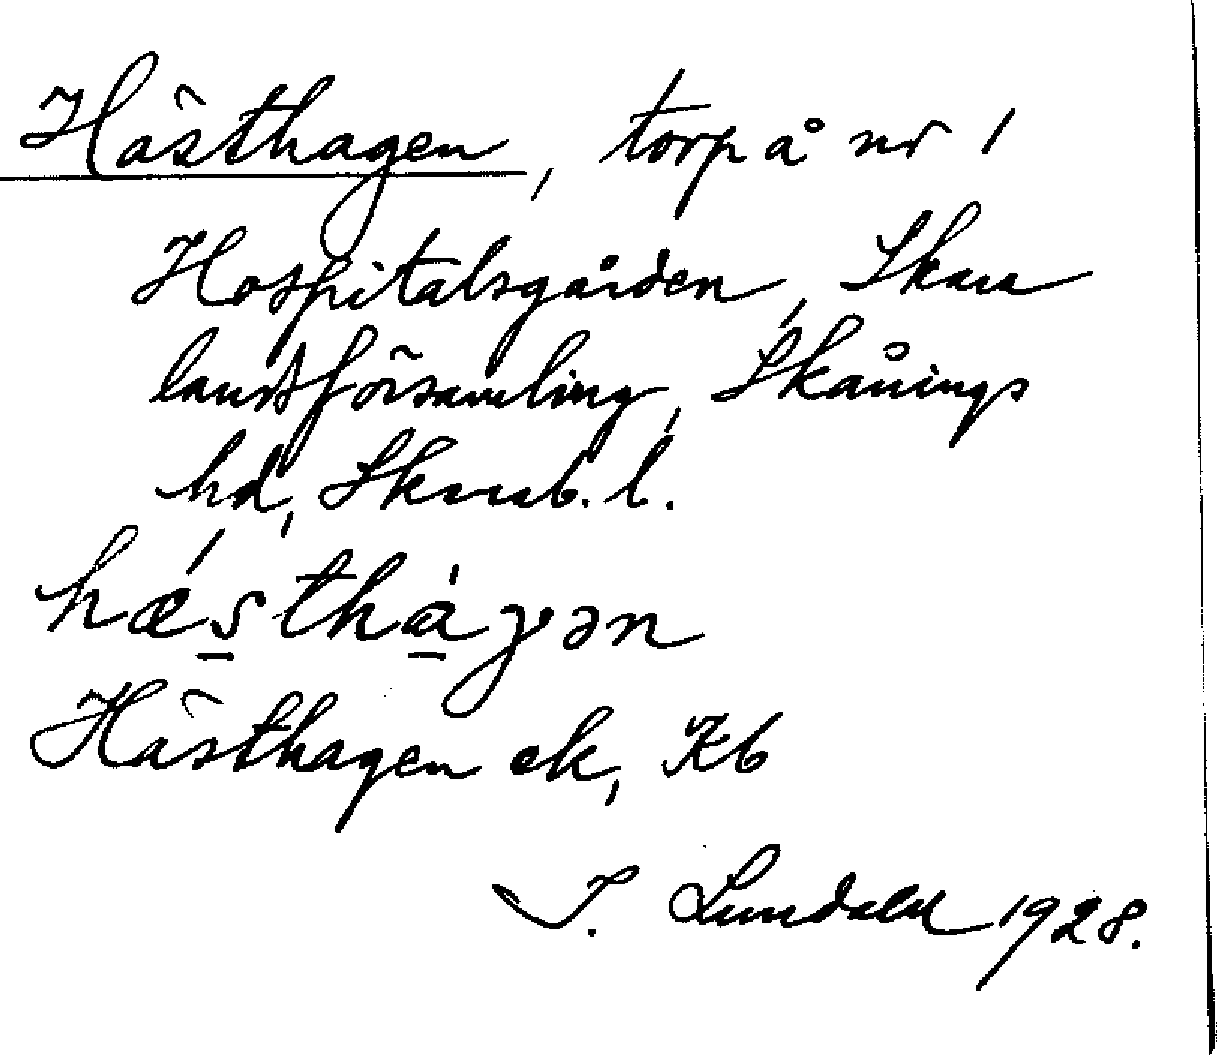 Hästhagen, torp å nr 1
Hospitalsgården, Skara
landsförsamling, Skånings
hd, Skarab. l.
hæ´stha`gən
Hästhagen ek, Kb
I. Lundahl 1928.